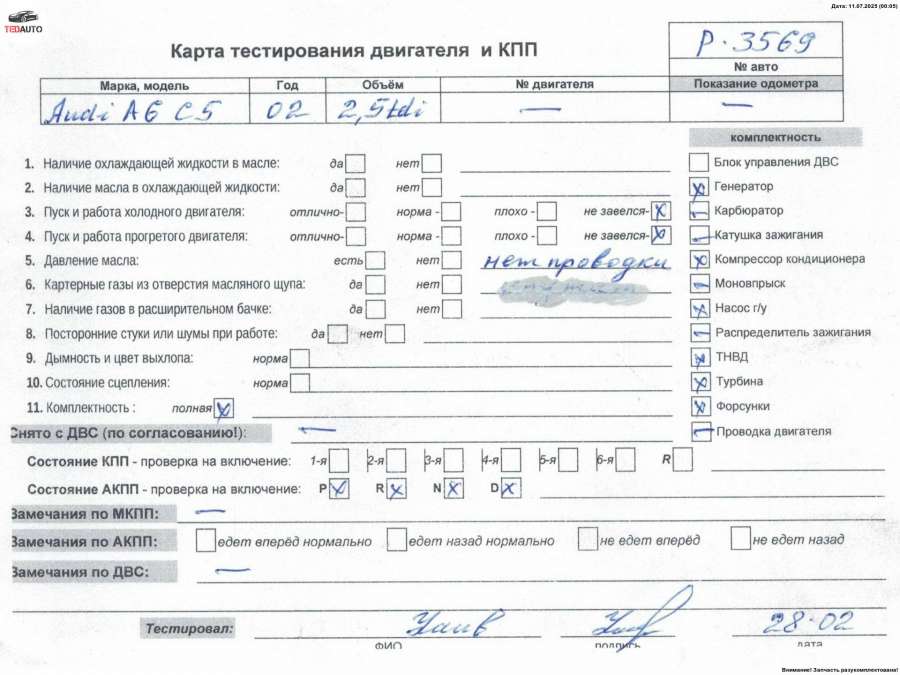 Дата: 11.07.2025 (00:05)
TEDAUTO
Карта тестирования двигателя и КПП
Р-3569
№ авто
Марка, модель Год Объём № двигателя Показание одометра
Audi A6 C5 02 2,5tdi — —
комплектность
1. Наличие охлаждающей жидкости в масле: да нет
2. Наличие масла в охлаждающей жидкости: да нет
3. Пуск и работа холодного двигателя: отлично- норма - плохо - не завелся- x
4. Пуск и работа прогретого двигателя: отлично- норма - плохо - не завелся- x
5. Давление масла: есть нет нет проводки
6. Картерные газы из отверстия масляного щупа: да нет
7. Наличие газов в расширительном бачке: да нет
8. Посторонние стуки или шумы при работе: да нет
9. Дымность и цвет выхлопа: норма
10. Состояние сцепления: норма
11. Комплектность : полная x
Блок управления ДВС
x Генератор
— Карбюратор
— Катушка зажигания
x Компрессор кондиционера
— Моновпрыск
x Насос г/у
— Распределитель зажигания
x ТНВД
x Турбина
x Форсунки
— Проводка двигателя
Снято с ДВС (по согласованию!): —
Состояние КПП - проверка на включение: 1-я 2-я 3-я 4-я 5-я 6-я R
Состояние АКПП - проверка на включение: P x R x N x D x
Замечания по МКПП: —
Замечания по АКПП: едет вперёд нормально едет назад нормально не едет вперёд не едет назад
Замечания по ДВС: —
Тестировал: 28-02
ФИО подпись дата
Внимание! Запчасть разукомплектована!